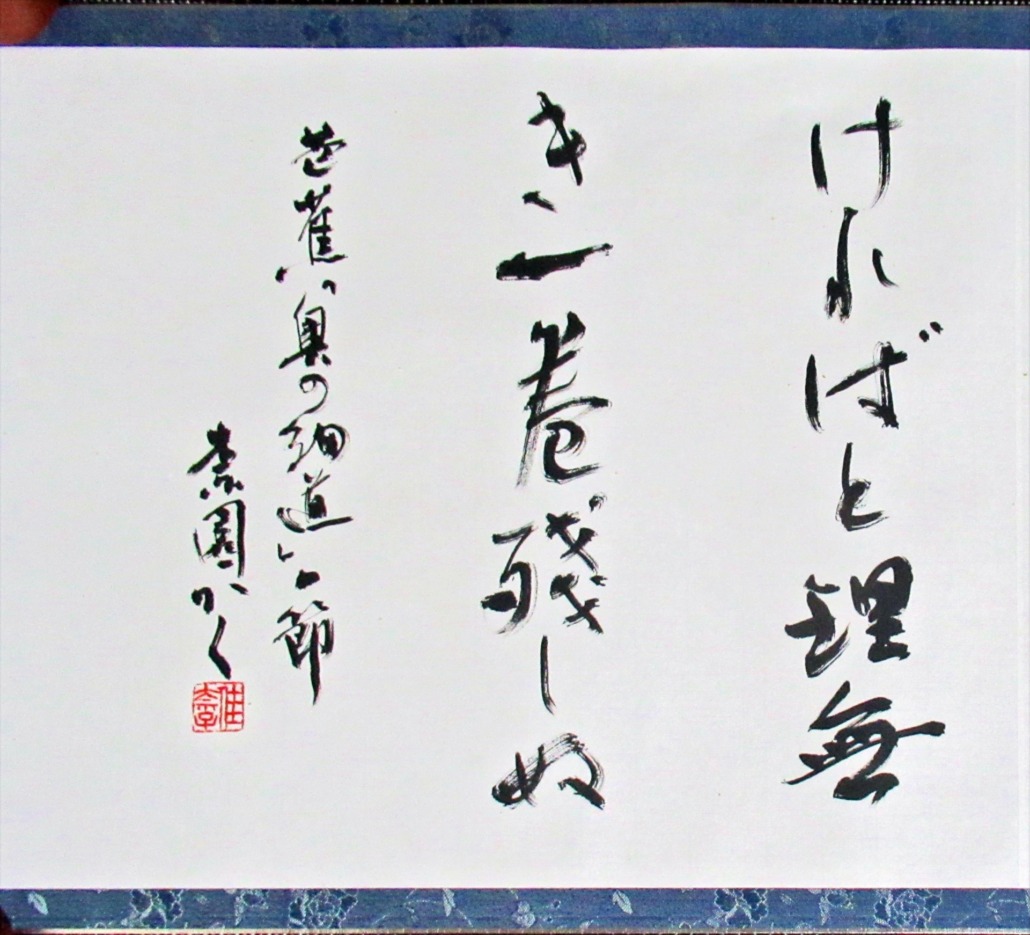 ければと理無
き一巻残しぬ
芭蕉「奥の細道」の一節
素園かく